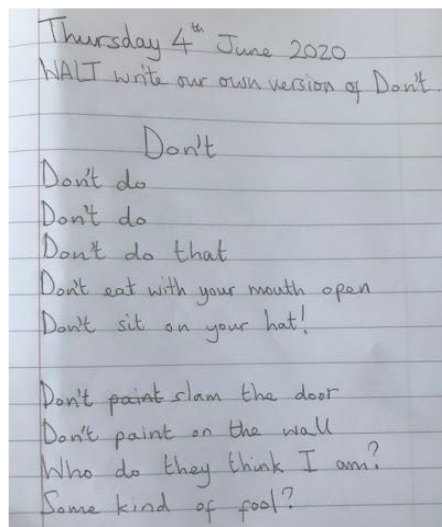 Thursday 4th June 2020
WALT write our own version of Don't
Don't
Don't do
Don't do
Don't do that
Don't eat with your mouth open
Don't sit on your hat!
Don't paint slam the door
Don't paint on the wall
Who do they think I am?
Some kind of fool?